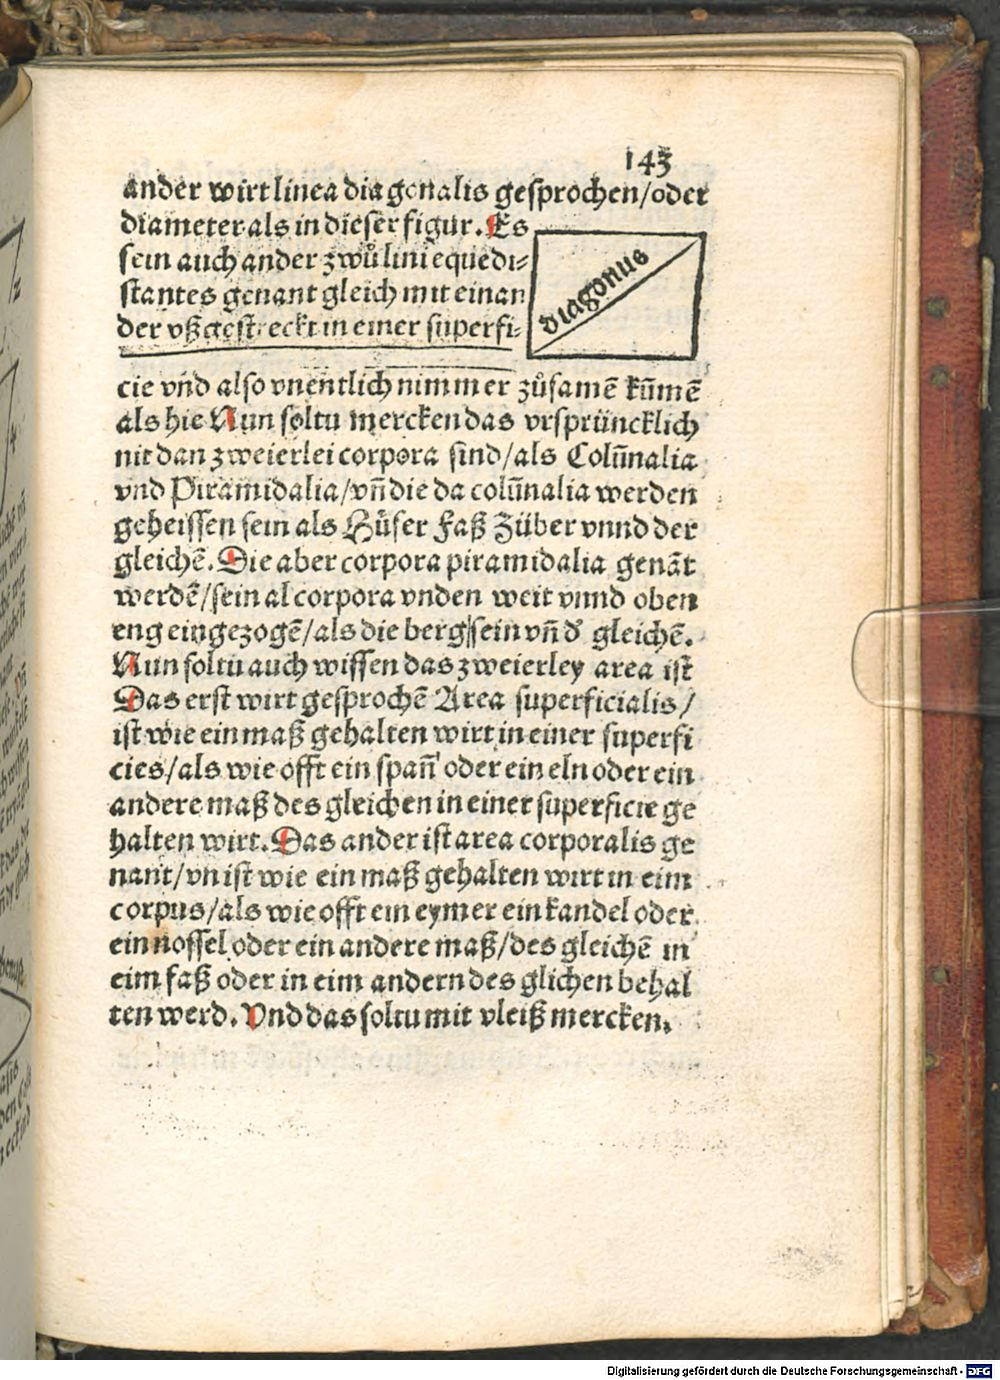 143
ander wirt linea diagonalis gesprochen/oder
diameter als in dieser figur. Es
sein auch ander zwů lini equedi⸗
stantes genant gleich mit einan
der vßgestreckt in einer superfi⸗
diagonus
cie vnd also vnentlich nimmer zůsamē kūmē
als hie Nun soltu mercken das vrsprüncklich
nit dan zweierlei corpora sind/als Colūnalia
vnd Piramidalia/vñ die da colūnalia werden
geheissen sein als Hüser Faß Züber vnnd der
gleichē. Die aber corpora piramidalia genāt
werdē/sein al corpora vnden weit vnnd oben
eng eingezogē/als die berg sein vñ d' gleichē.
Nun soltu auch wissen das zweierley area ist
Das erst wirt gesprochē Area superficialis/
ist wie ein maß gehalten wirt in einer superfi
cies/als wie offt ein spañ oder ein eln oder ein
andere maß des gleichen in einer superficie ge
halten wirt. Das ander ist area corporalis ge
nant/vn ist wie ein maß gehalten wirt in eim
corpus/als wie offt ein eymer ein kandel oder
ein nossel oder ein andere maß/des gleichē in
eim faß oder in eim andern des glichen behal
ten werd. Vnd das soltu mit vleiß mercken.
Digitalisierung gefördert durch die Deutsche Forschungsgemeinschaft - DFG